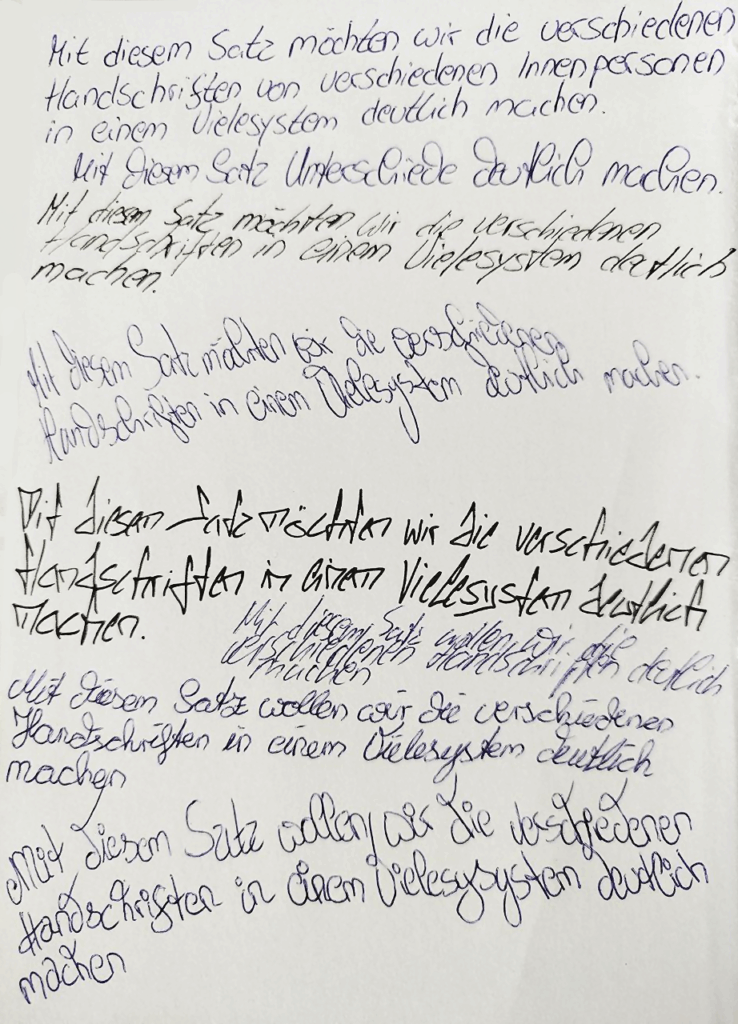 Mit diesem Satz möchten wir die verschiedenen
Handschriften von verschiedenen Innenpersonen
in einem Vielesystem deutlich machen.
Mit diesem Satz Unterschiede deutlich machen.
Mit diesem Satz möchten wir die verschiedenen
Handschriften in einem Vielesystem deutlich
machen.
Mit diesem Satz möchten wir die verschiedenen
Handschriften in einem Vielesystem deutlich machen.
Mit diesen Satz möchten wir die verschiedenen
Handschriften in einem Vielesystem deutlich
machen.
Mit diesem Satz wollen wir die
verschiedenen Handschriften deutlich
machen
Mit diesem Satz wollen wir die verschiedenen
Handschriften in einem Vielesystem deutlich
machen
Mit diesem Satz wollen wir die verschiedenen
Handschriften in einem Vielesysystem deutlich
machen